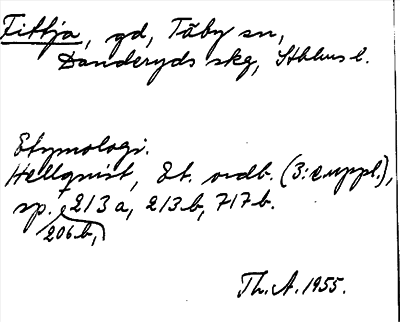 Fittja, gd, Täby sn,
Danderyds skg, Sthlms l.
Etymologi.
Hellquist, Et. ordb. (3:e uppl.),
sp. 213a, 213b, 717b.
206b,
Th. A. 1955.